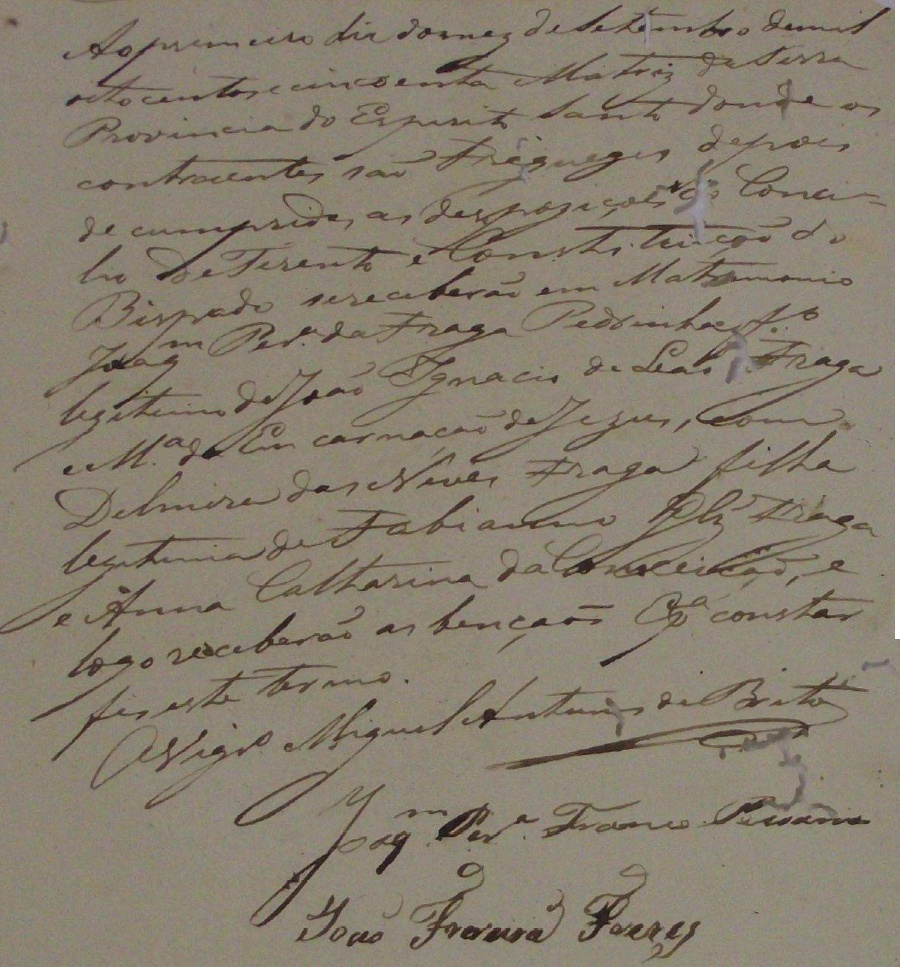 Ao primeiro dia do mez de Setembro de mil
oito centos e cincoenta Matriz da Serra
Provincia do Espirito Santo donde os
contraentes são Freguezes depois
de cumpridas as despoziçoes do Conci-
lio de Terento e Constituição do
Bispado se receberão em Matrimonio
Joaqm Per.ª da Fraga Pedrinha f.º
legitimo de João Ignacio de Leão Fraga
e M.ª da Encarnação de Jezus, com
Delmira das Neves Fraga filha
legitima de Fabianno Fraga
e Anna Catharina da Conceição, e
logo receberão as bençaõs Pª constar
fis este termo.
O Vigrº Miguel Antunes de Brito
Joaqm Perª Franco Pissarra
João